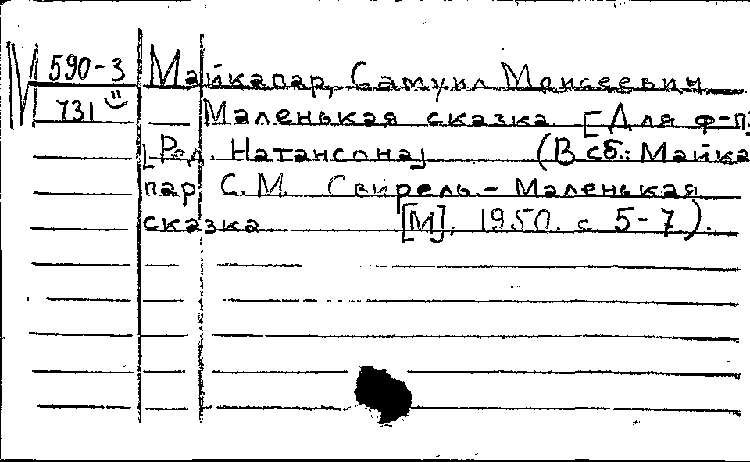 М 590-3 Майкапар, Самуил Моисеевич
731 Маленькая сказка [Для ф-п]
[Ред. Натансона] (В сб.: Майка
пар С. М. Свирель. - Маленькая
сказка [М], 1950. с 5-7).